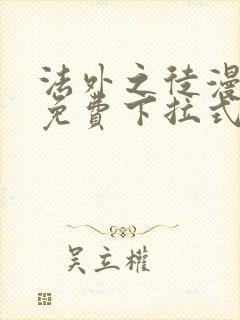 法外之徒漫
免費下拉式
吴立權